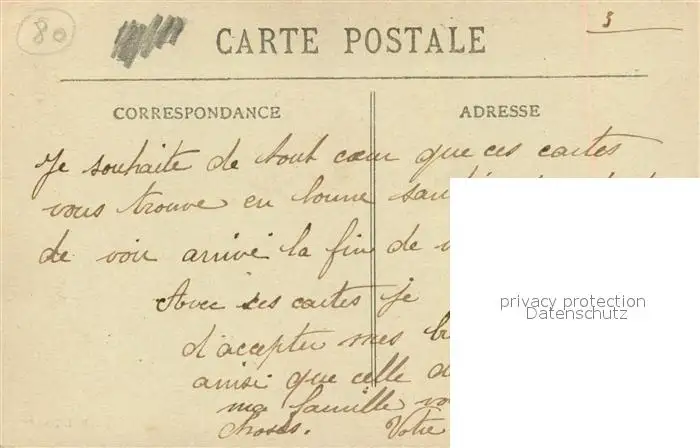 80
3
CARTE POSTALE
CORRESPONDANCE
ADRESSE
Je souhaite de tout cœur que ces cartes
vous trouve en bonne
de voir arrivé la fin de
Avec ces cartes je
d'accepter mes
ainsi que celle
ma famille
choses. Votre
privacy protection
Datenschutz